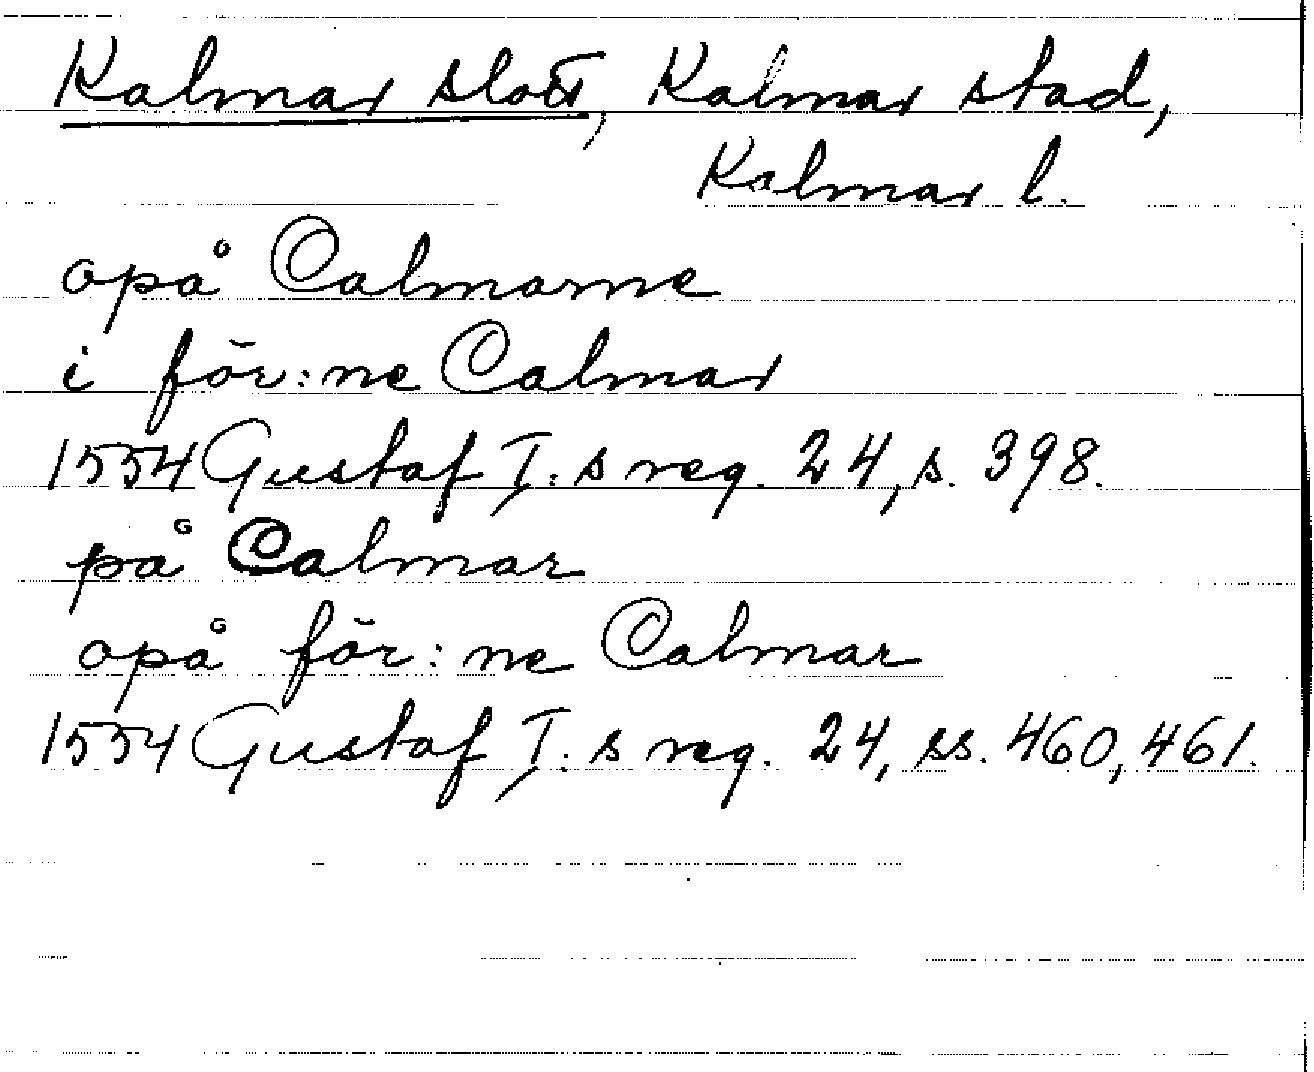 Kalmar slott, Kalmar stad,
Kalmar l.
opå Calmarne
i för:ne Calmar
1554 Gustaf I:s reg. 24, s. 398.
på Calmar
opå för:ne Calmar
1554 Gustaf I:s reg. 24, ss. 460, 461.